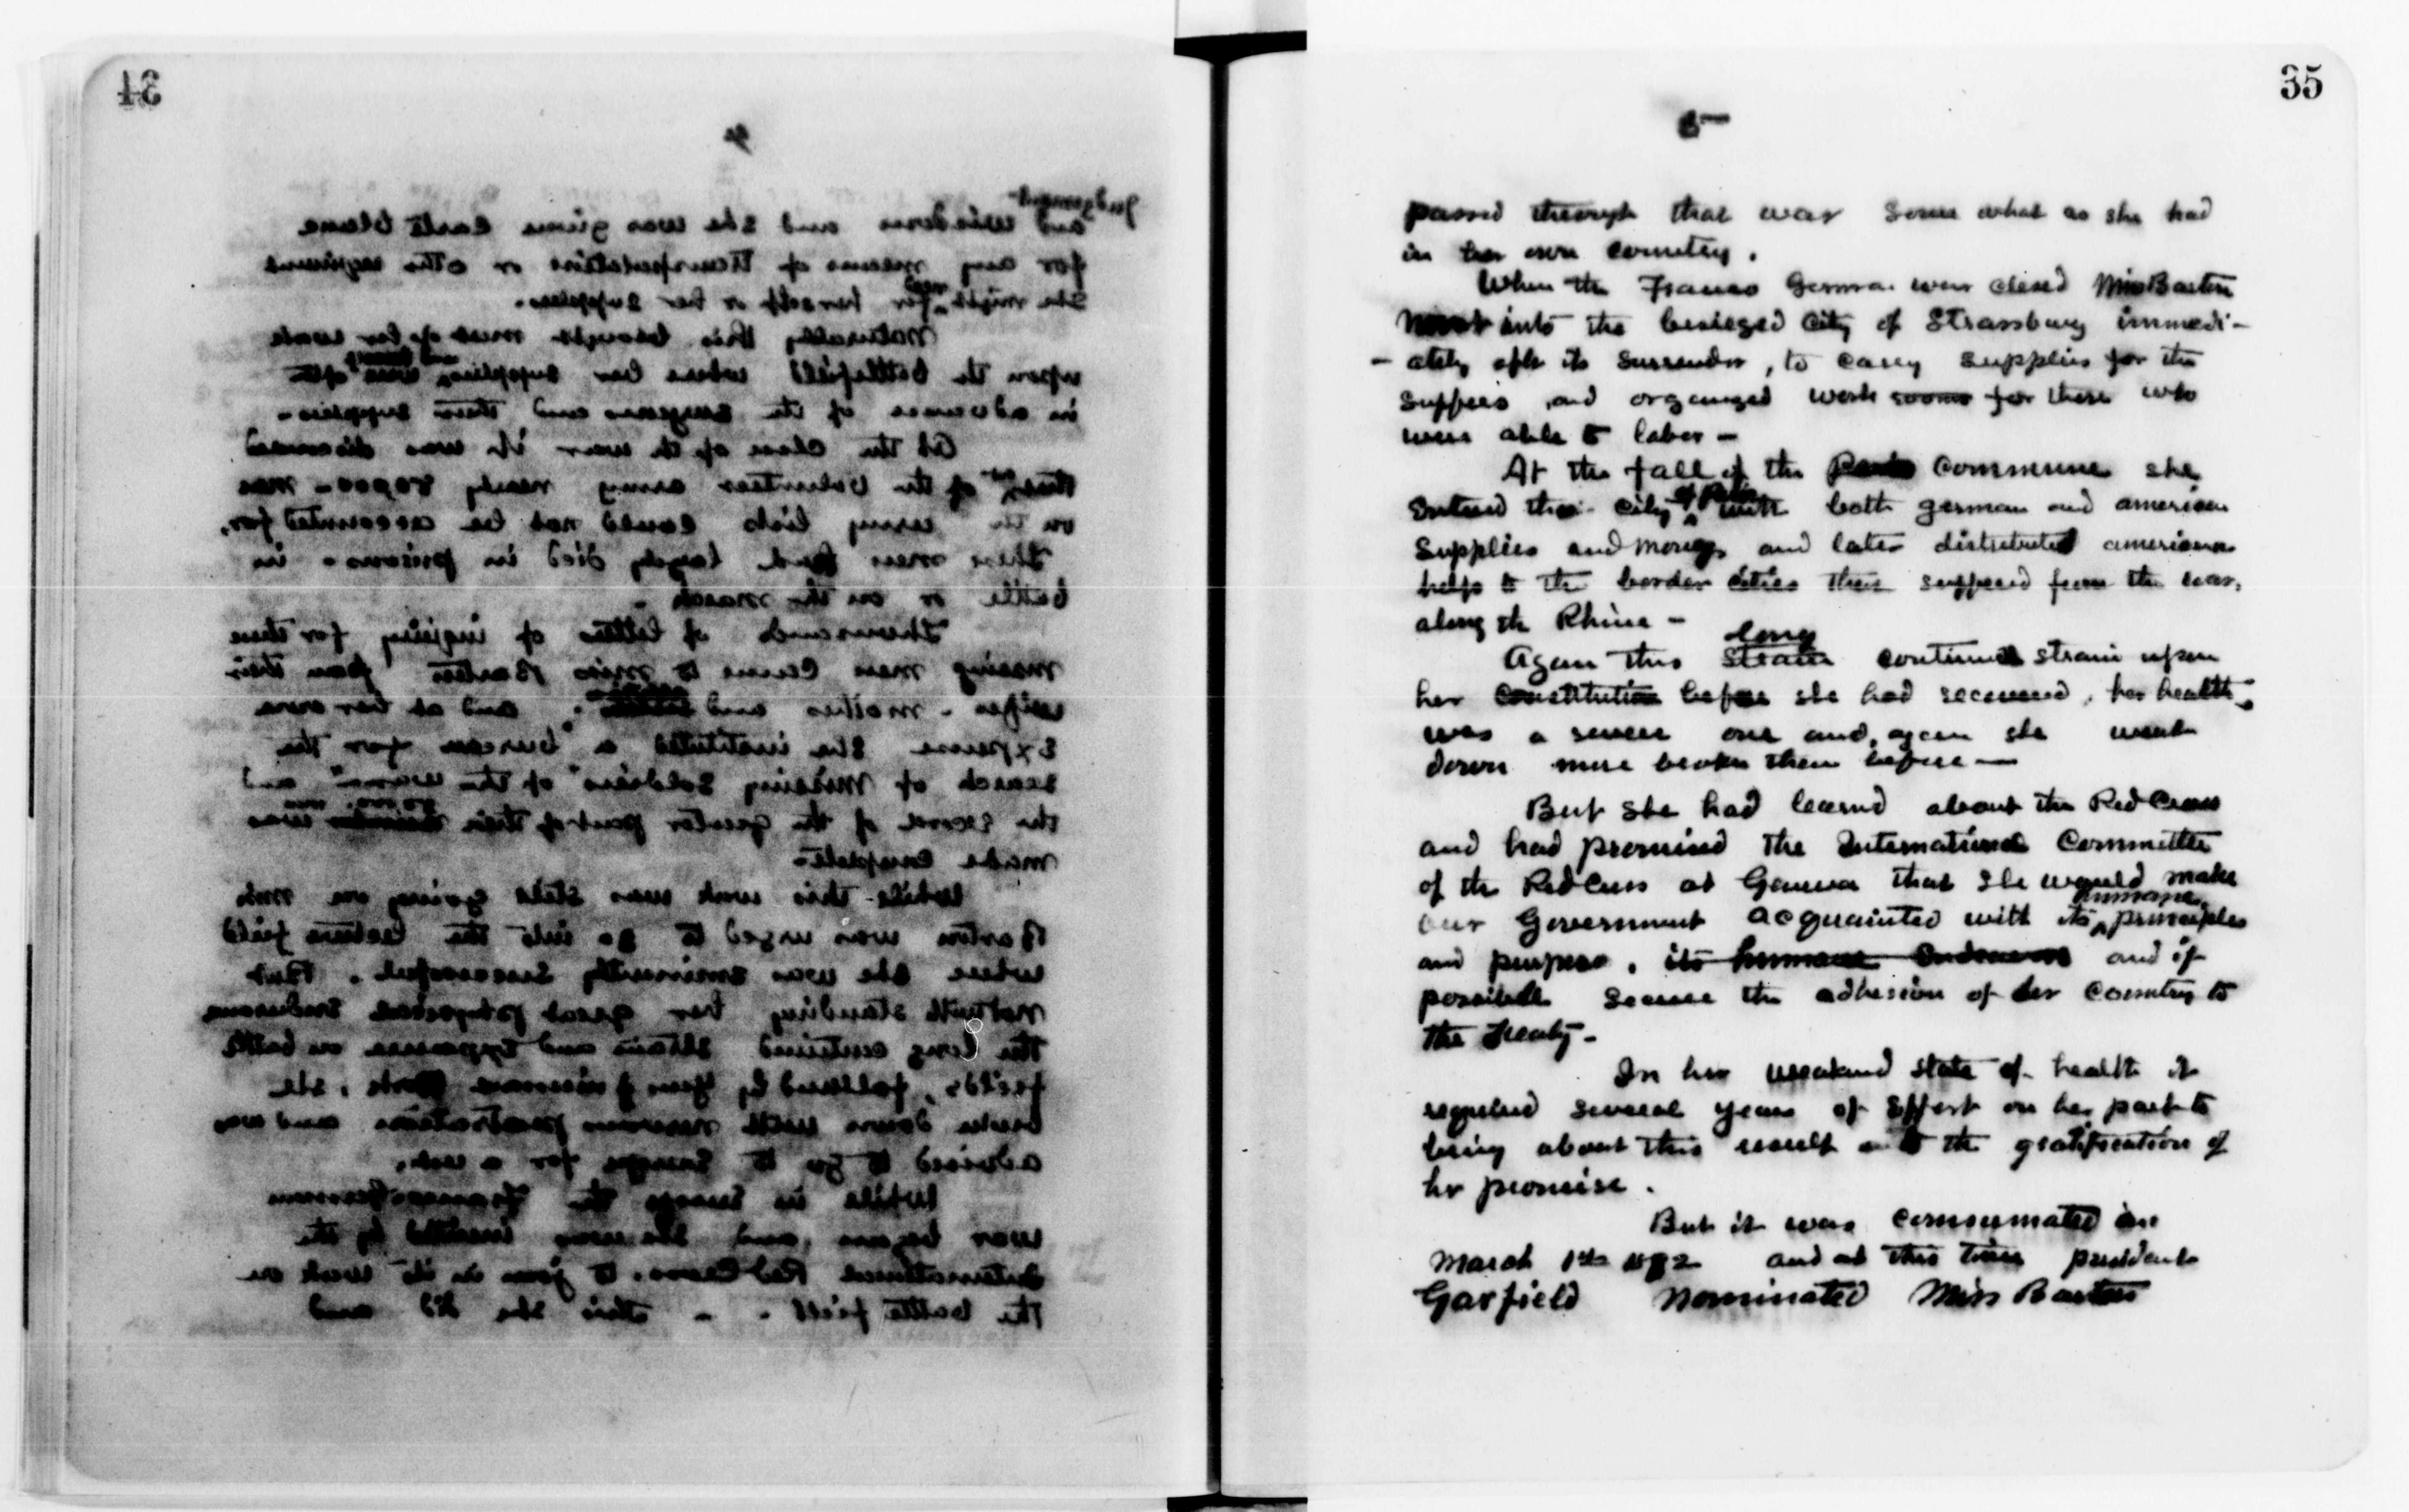 34
4
judgment
and wisdom and she was given carte blanc
for any means of transportation or other requirement
she might need for herself or her supplies.
Naturally this brought most of her work
upon the battlefield where her supplies were often
in advance of the surgeons and their supplies -
At the close of the war it was discovered
that of the volunteer army nearly 80,000 - men
on the army lists could not be accounted for,
These men had largely died in prisons - in
battle or on the march -
Thousands of letters of inquiry for these
missing men came to Miss Barton from their
wifes - mothers and and at her own
Expense she instituted a "bureau for the
search of Missing Soldiers of the war" and
the record of the greater part of these was
made complete -
While this work was still going on Miss
Barton was urged to go into the lecture field
where she was eminently successful. But
notwithstanding her great physical endurance
the long continued strain and exposure on battle
fields, followed by years of work, she
broke down with nervous prostration and was
advised to go to Europe for a rest.
While in Europe the Franco German
war began, and she was invited by the
International Red Cross, to join in its work on
the battle field - - this she did and
35
5 —
passed through that war some what as she had
in her own country.
When the Franco German war closed Miss Barton
went into the besieged City of Strassburg immedi-
- ately after its surrender, to carry supplies for the
suffers and organized work rooms for those who
were able to labor -
At the fall of the Paris Commune she
Entered the city of Paris with both german and american
supplies and money and later distributed american
helps to the border cities that suffered from the war,
along the Rhine -
Again this strain long continued strain upon
her constitution before she had recovered her health
was a severe one and, again she went
down more broken than before —
But she had learned about the Red Cross
and had promised the International Committee
of the Red Cross at Geneva that she would make
our Government acquainted with its humane principles
and purpose, its humane and if
possible secure the adhesion of her Country to
the treaty -
In her weakened state of health it
required several years of Effort on her part to
bring about this result and the gratification of
her promise.
But it was consumated in
March 1st 1882 and at this time president
Garfield Nominated Miss Barton